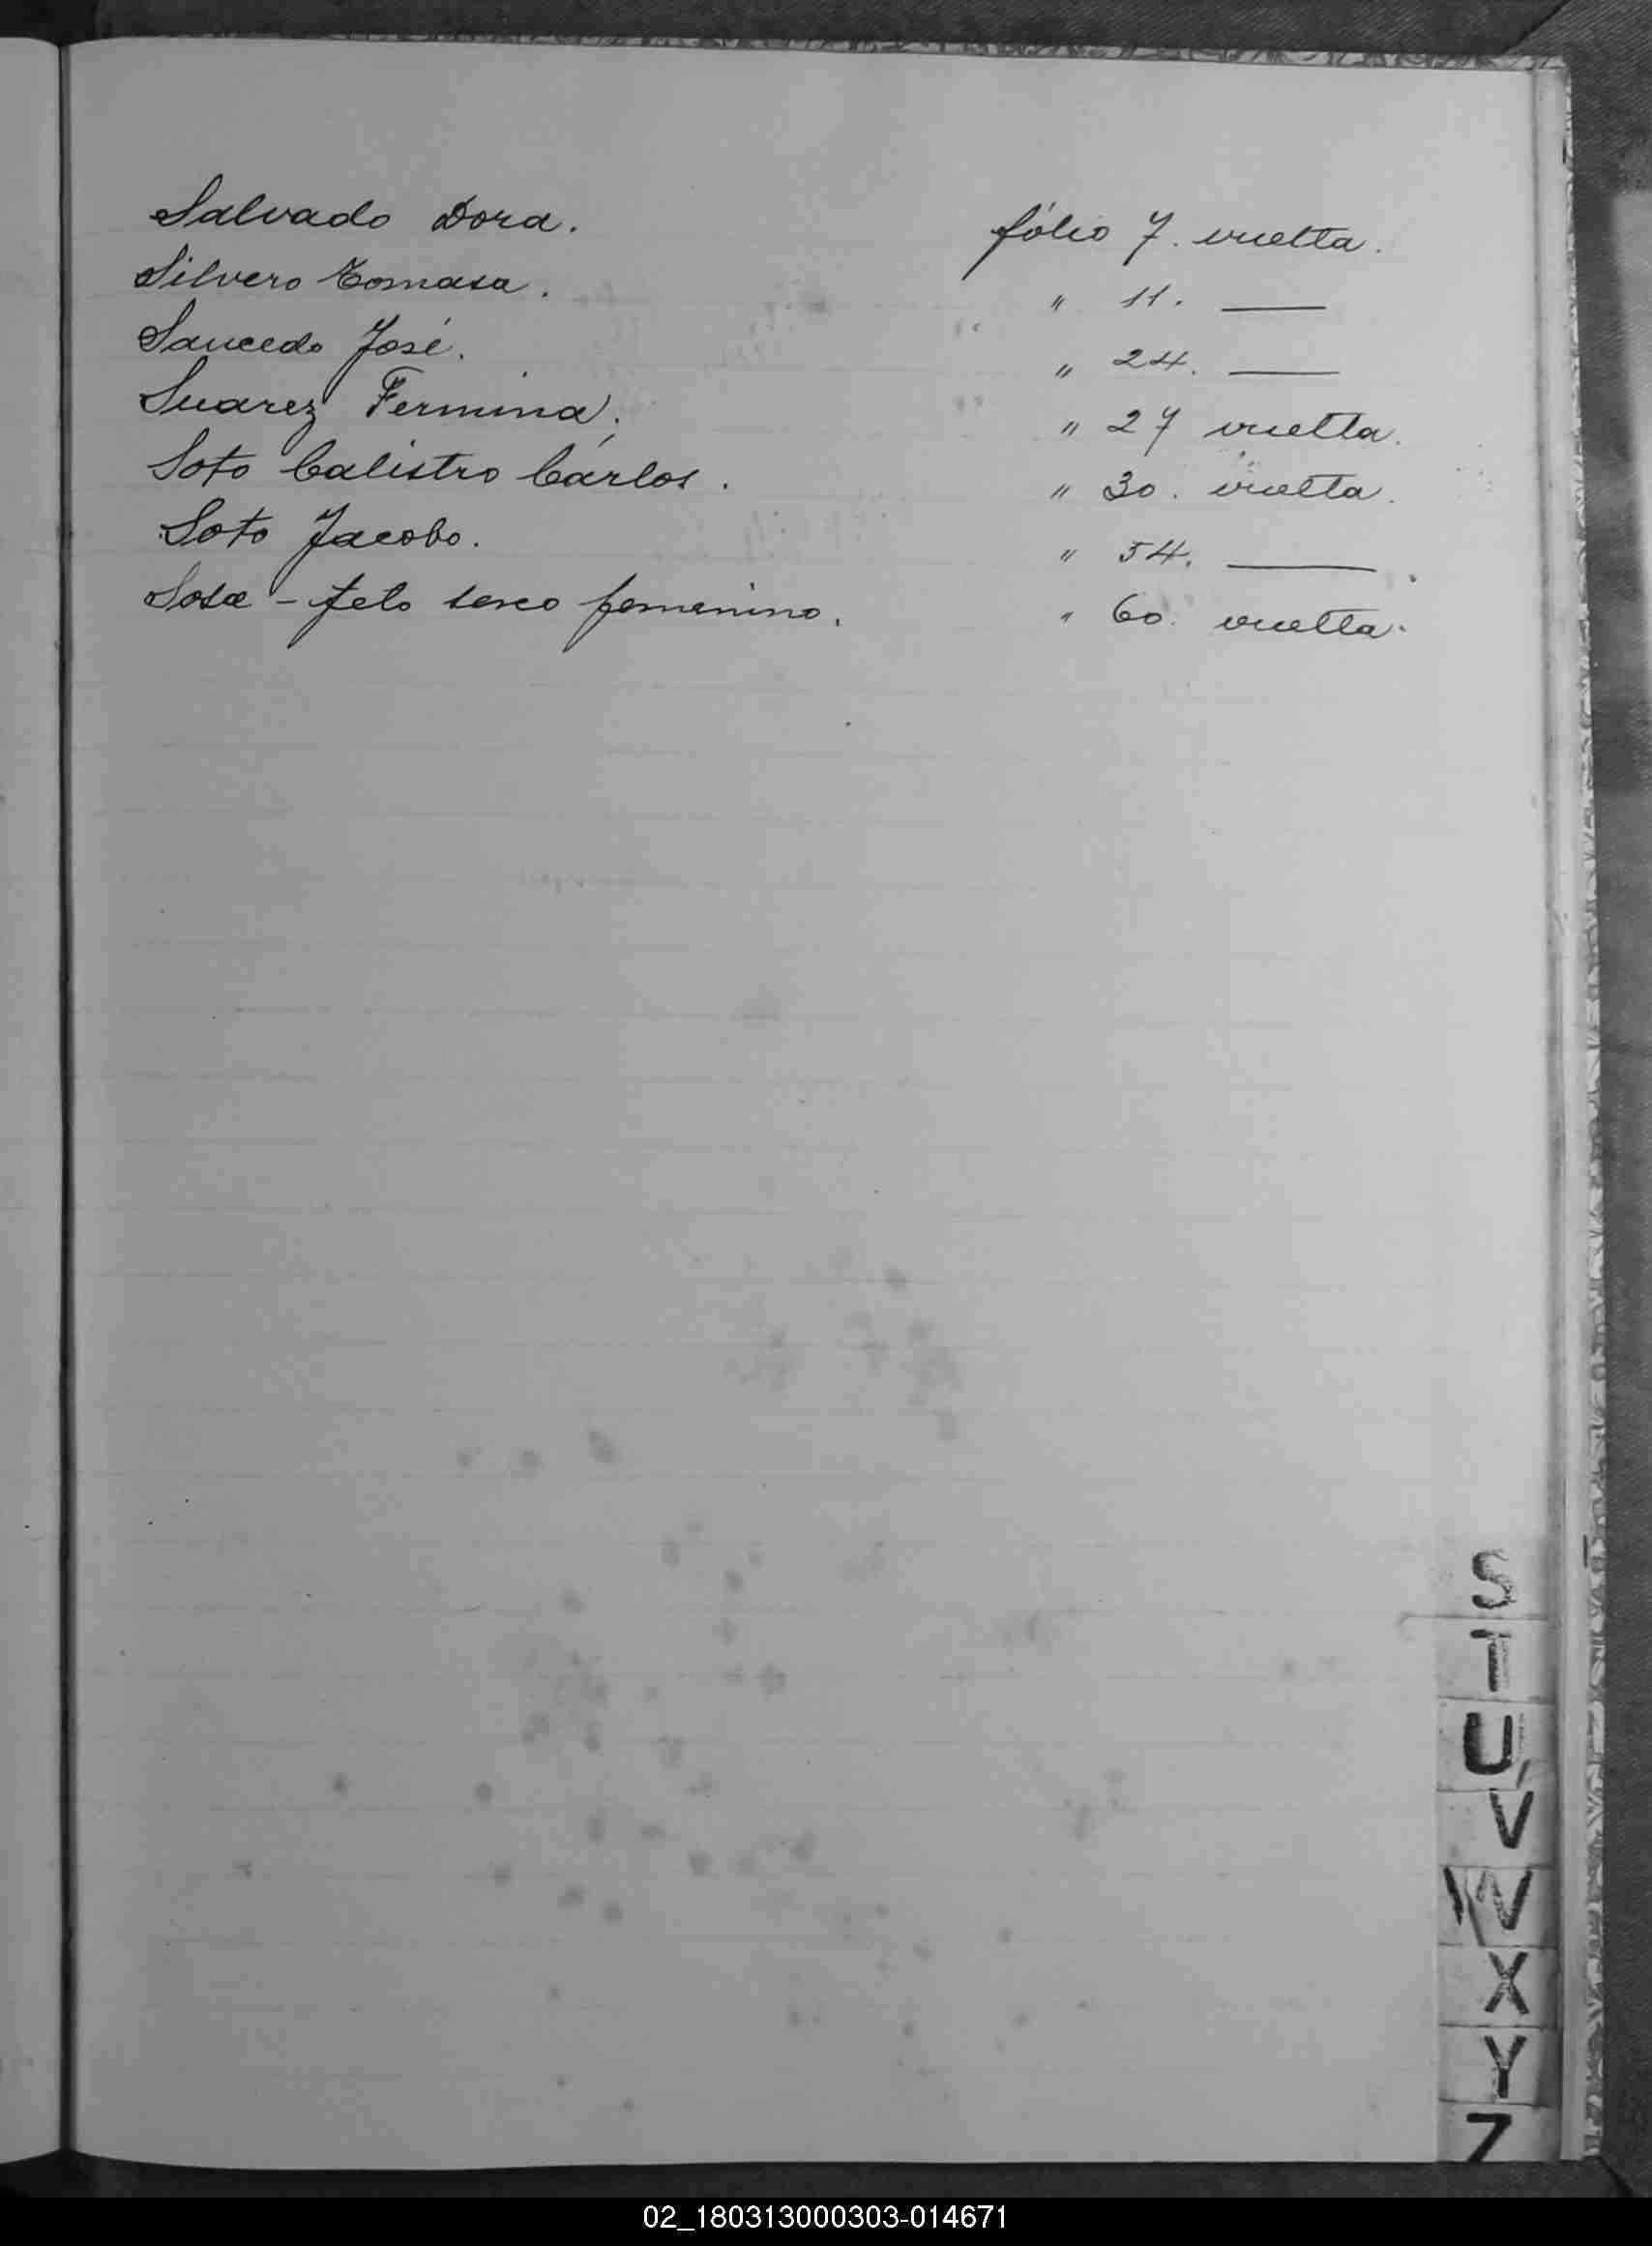 Salvado Dora. fólio 7. vuelta.
Silvero Tomasa. " 11. ——
Saucedo José. " 24. ——
Suarez Fermina. " 27 vuelta.
Soto Calistro Cárlos. " 30. vuelta.
Soto Jacobo. " 54. ——
Sosa - feto sexo femenino. " 60. vuelta.
S
T
U
V
W
X
Y
Z
02_180313000303-014671